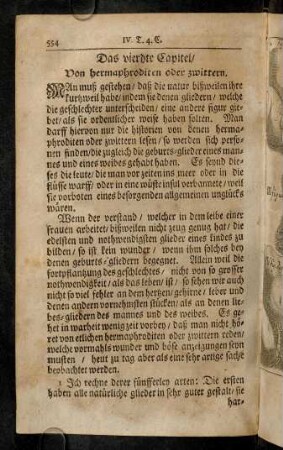 554
IV. T. 4. C.
Das vierdte Capitel/
Von hermaphroditen oder zwittern.
MAn muß gestehen/ daß die natur bißweilen ihre
kurtzweil habe/ indem sie denen gliedern/ welche
die geschlechter unterscheiden/ eine andere figur gie-
bet/ als sie ordentlicher weise haben solten. Man
darff hiervon nur die historien von denen herma-
phroditen oder zwittern lesen/ so werden sich perso-
nen finden/ die zugleich die geburts-glieder eines man-
nes und eines weibes gehabt haben. Es seynd die-
ses die leute/ die man vor zeiten ins meer oder in die
flüsse warff/ oder in eine wüste insul verbannete/ weil
sie vorboten eines besorgenden allgemeinen unglücks
wären.
Wenn der verstand/ welcher in dem leibe einer
frauen arbeitet/ bißweilen nicht zeug genug hat/ die
edelsten und nothwendigsten glieder eines kindes zu
bilden/ so ist kein wunder/ wenn ihm solches bey
denen geburts-gliedern begegnet. Allein weil die
fortpflantzung des geschlechtes/ nicht von so grosser
nothwendigkeit/ als das leben/ ist/ so sehen wir auch
nicht so viel fehler an dem hertzen/ gehirne/ leber und
denen andern vornehmsten stücken/ als an denen lie-
bes-gliedern des mannes und des weibes. Es ge-
het in warheit wenig zeit vorbey/ daß man nicht hö-
ret von etlichen hermaphroditen oder zwittern reden/
welche vormahls wunder und böse anzeigungen seyn
musten/ heut zu tag aber als eine sehr artige sache
beobachtet werden.
1 Ich rechne derer fünfferley arten: Die ersten
haben alle natürliche glieder in sehr guter gestalt/ sie
har-